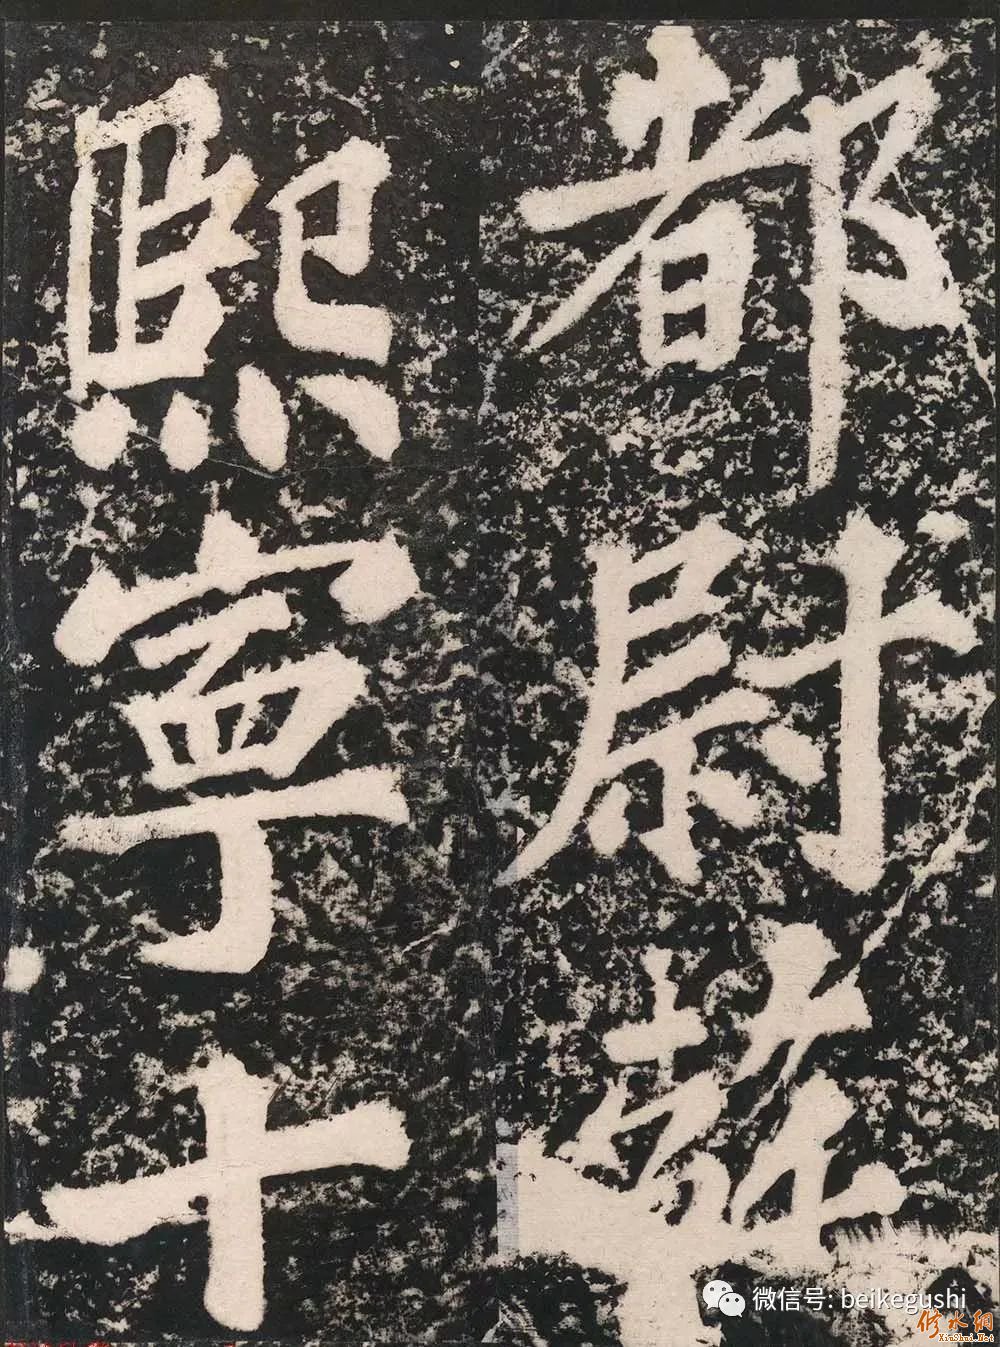 都尉蘇
熙寧十
微信号: beikegushi
修水網
XiuShui.Net